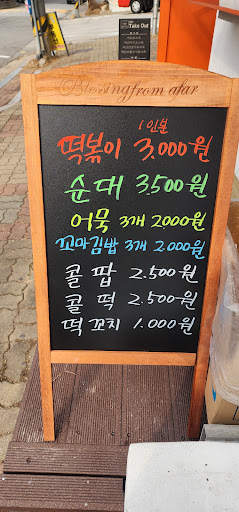 Take Out
Blessing from afar
1인분
떡볶이 3,000원
순대 3,500원
어묵 3개 2000원
꼬마김밥 3개 2,000원
콜팝 2,500원
콜떡 2,500원
떡꼬치 1,000원